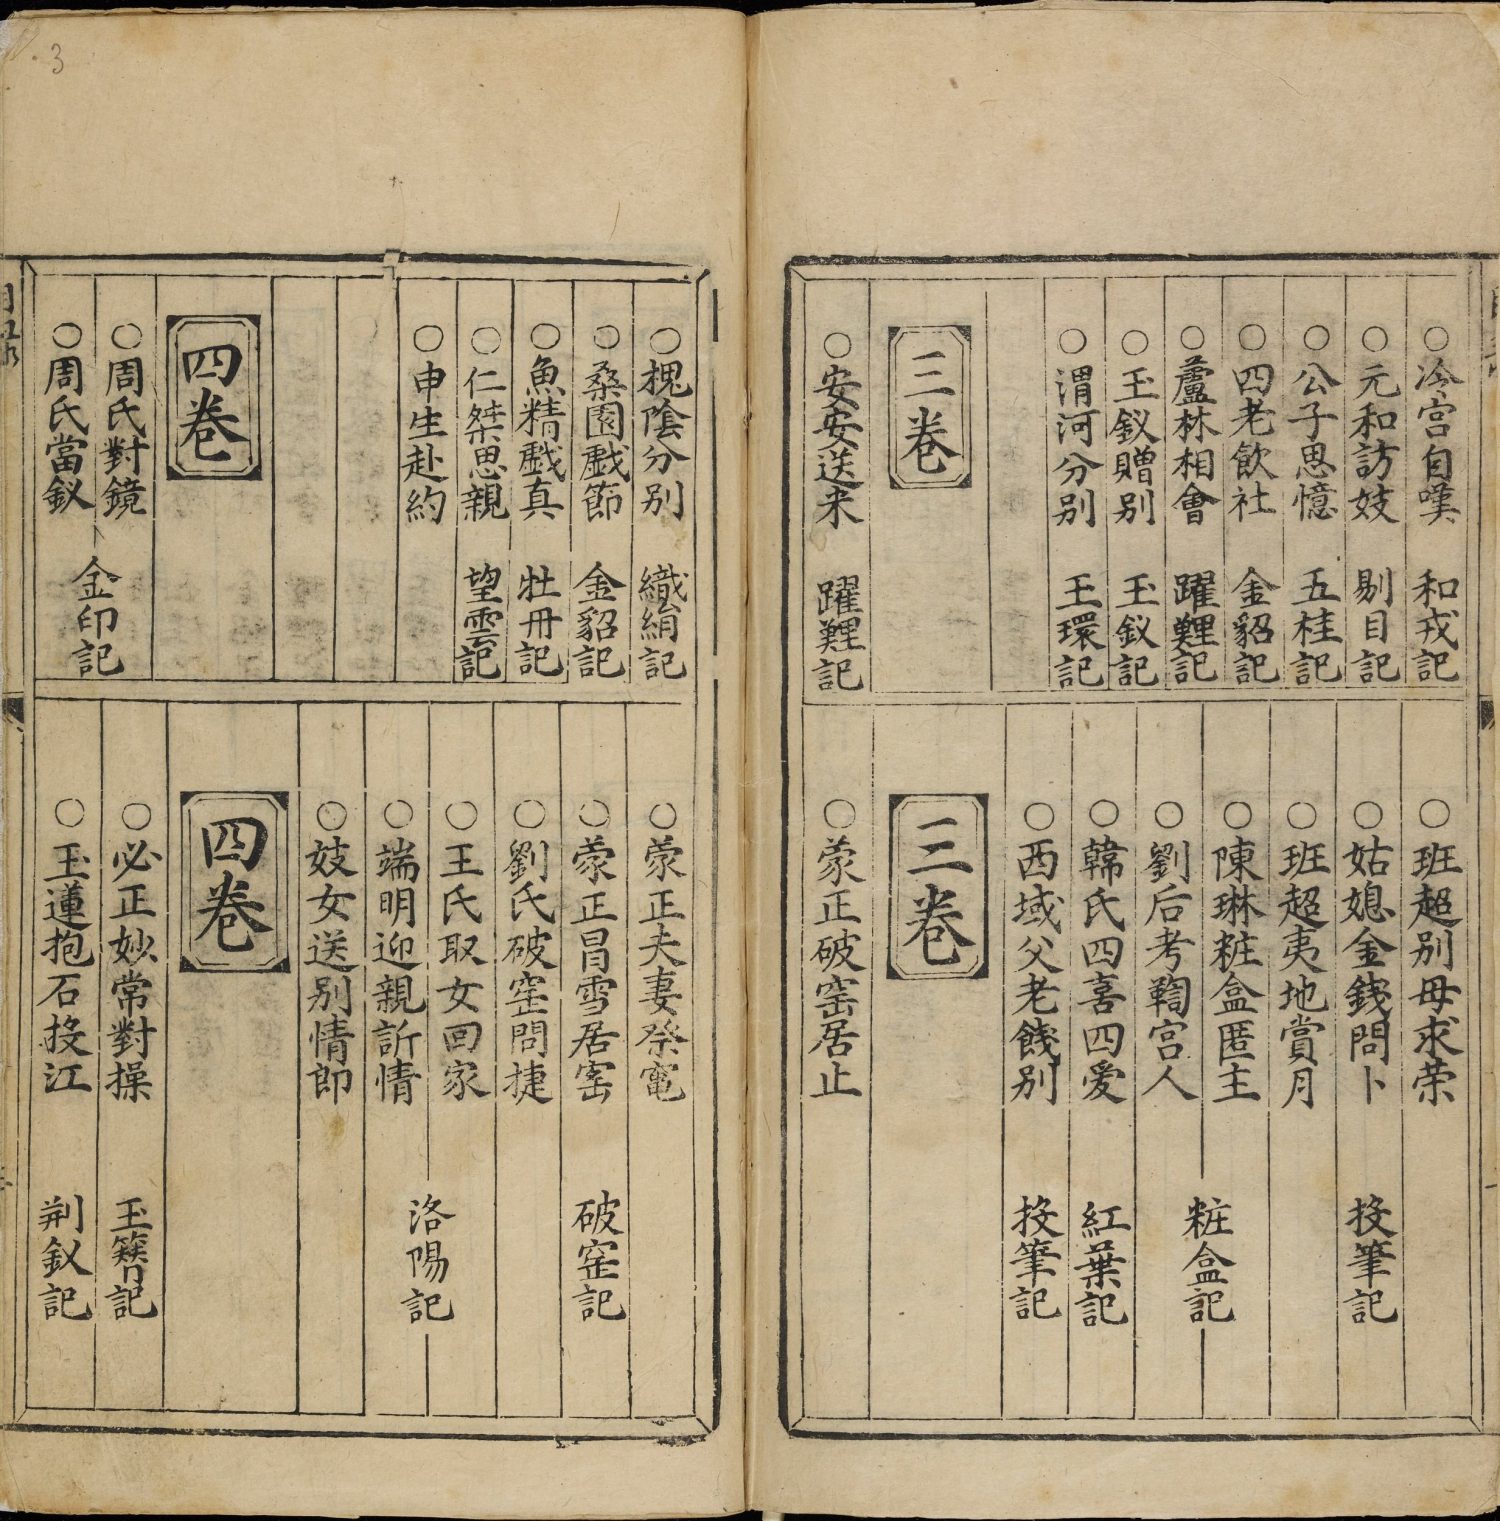 ○冷宮自嘆 和戎記
○元和訪妓 剔目記
○公子思憶 五桂記
○四老飲社 金貂記
○蘆林相會 躍鯉記
○玉釵贈別 玉釵記
○渭河分別 玉環記
三卷
○安安送米 躍鯉記
○班超別母求荣
○姑媳金錢問卜 投筆記
○班超夷地賞月
○陳琳粧盒匿主
○劉后考鞫宮人
粧盒記
○韓氏四喜四愛 紅葉記
○西域父老餞別 投筆記
三卷
○蒙正破窑居止
○槐陰分別 織絹記
○桑園戲節 金貂記
○魚精戲真 牡丹記
○仁傑思親 望雲記
○申生赴約
四卷
○周氏對鏡
○周氏當釵
金印記
○蒙正夫妻祭竃
○蒙正冒雪居窑 破窑記
○劉氏破窑問捷
○王氏取女回家
○端明迎親訴情
洛陽記
○妓女送別情郎
四卷
○必正妙常對操 玉簪記
○玉蓮抱石投江 荆釵記
3